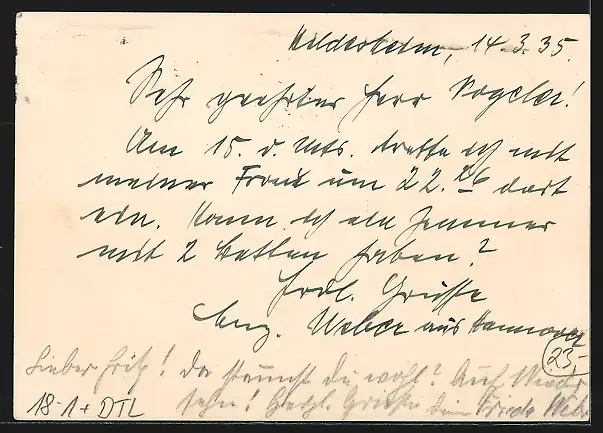 Hildesheim, 14.3.35.
Sehr geehrter Herr Vogeler!
Am 15. d. Mts. treffe ich mit
meiner Frau um 22.26 dort
ein. Kann ich ein Zimmer
mit 2 Betten haben?
Frdl. Grüsse
Aug. Weber aus Hannover
23,-
Lieber Fritz! Da staunst du wohl? Auf Wieder
sehn! Herzl. Grüße dein Frieda Web
18-1+ DTL